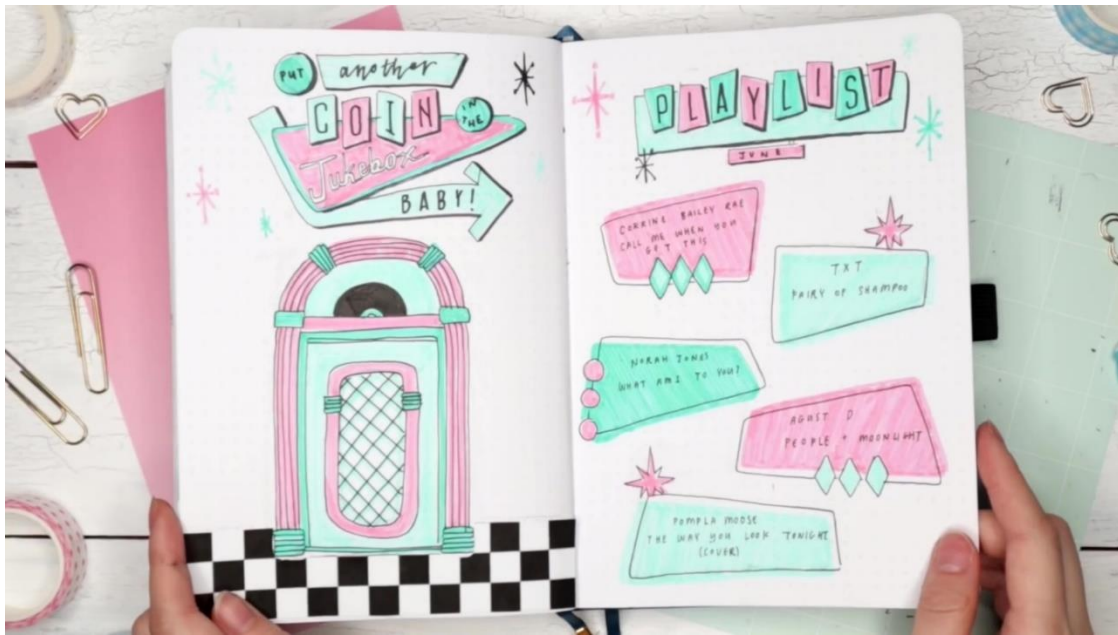 PUT
another
COIN
IN
THE
Jukebox
BABY!
PLAYLIST
JUNE
CORRINE BAILEY RAE
CALL ME WHEN YOU
GET THIS
TXT
FAIRY OF SHAMPOO
NORAH JONES
WHAT AM I TO YOU?
AGUST D
PEOPLE + MOONLIGHT
POMPLA MOOSE
THE WAY YOU LOOK TONIGHT
(COVER)